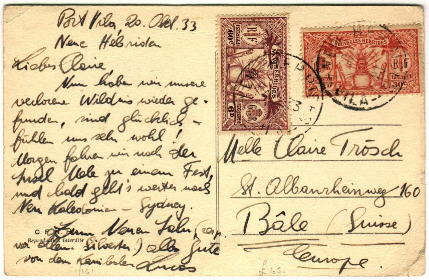 Port Vila, 20. Okt. 33
Neue Hebriden
Liebes Claire
Nun haben wir unsere
verlorene Wildnis wieder ge-
funden, sind glücklich-
fühlen uns sehr wohl!
Morgen fahren wir nach der
Insel Vate zu einem Fest,
und bald geht's weiter nach
Neu Kaledonien - Sydney.
Zum Neuen Jahr
vor allem alles Gute
von den Kanibalen
Lucas
Reproduction Interdite
RF
60c
6d
NOUVELLES HEBRIDES
RF
30c
VILA
Melle Claire Trösch
St. Albanrheinweg 160
Bâle (Suisse)
Europe